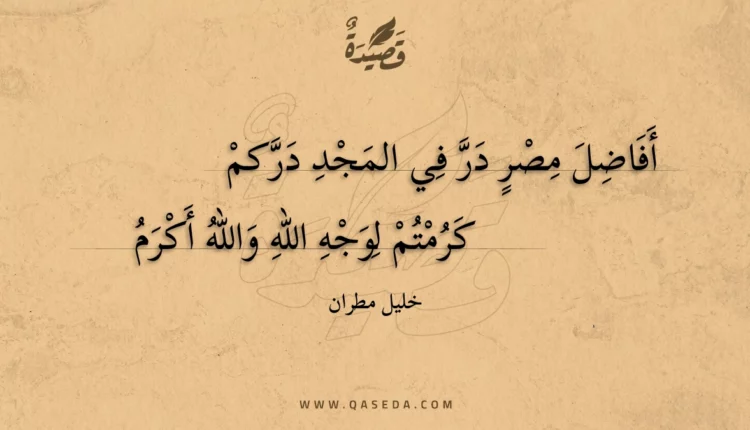 قَصِيْدَةٌ
أَفَاضِلَ مِصْرٍ دَرَّ فِي المَجْدِ دَرَّكمْ
كَرُمْتُمْ لِوَجْهِ اللهِ وَاللهُ أَكْرَمُ
خليل مطران
WWW.QASEDA.COM